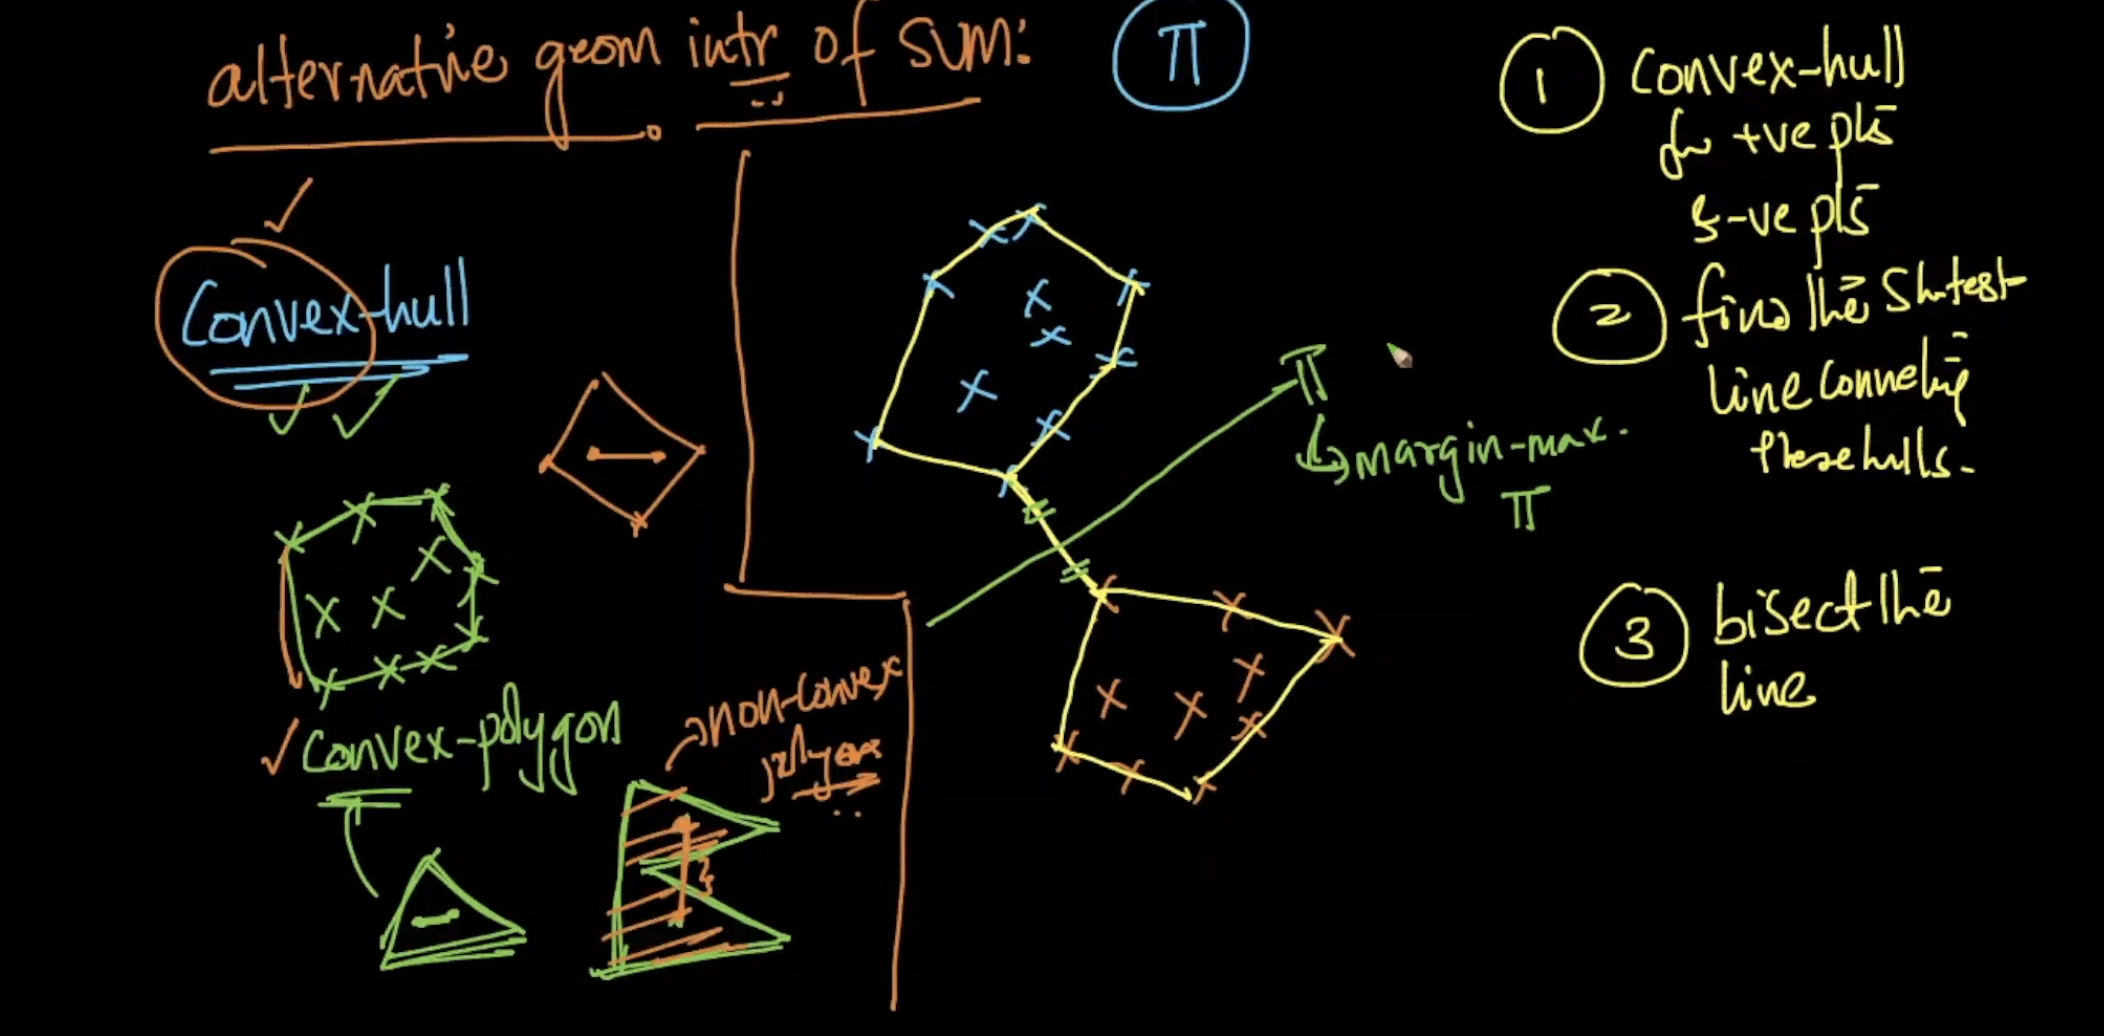 alternative geom intr of SVM:
π
Convex-hull
convex-polygon
non-convex
π
margin-max.
π
1 Convex-hull
for +ve pts
& -ve pts
2 find the shortest
line connecting
these hulls.
3 bisect the
line